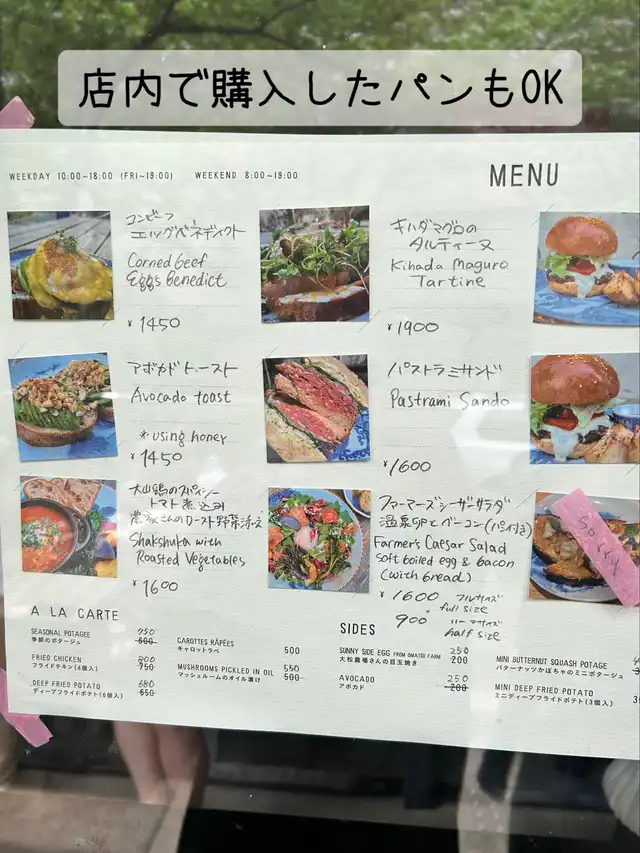 店内で購入したパンもOK
WEEKDAY 10:00~18:00 (FRI~19:00) WEEKEND 8:00~19:00
MENU
コンビーフ
エッグベネディクト
Corned beef
Eggs Benedict
¥1450
キハダマグロの
タルティーヌ
Kihada Maguro
Tartine
¥1900
アボカドトースト
Avocado toast
*using honey
¥1450
パストラミサンド
Pastrami Sando
¥1600
大山鶏のスパイシー
トマト煮込み
農家さんのロースト野菜添え
Shakshuka with
Roasted Vegetables
¥1600
ファーマーズシーザーサラダ
温泉卵とベーコン(パン付き)
Farmer's Caesar Salad
soft boiled egg & bacon
(with bread)
¥1600 フルサイズ
full size
900 ハーフサイズ
half size
Sorry
A LA CARTE
SEASONAL POTAGEE 750
季節のポタージュ 600
FRIED CHICKEN 800
フライドチキン(4個入) 750
DEEP FRIED POTATO 680
ディープフライドポテト(6個入) 650
CAROTTES RÂPÉES
キャロットラペ 500
MUSHROOMS PICKLED IN OIL 550
マッシュルームのオイル漬け 500
SIDES
SUNNY SIDE EGG FROM OMATSU FARM 250
大松農場さんの目玉焼き 200
AVOCADO 250
アボカド 200
MINI BUTTERNUT SQUASH POTAGE
バターナッツかぼちゃのミニポタージュ
MINI DEEP FRIED POTATO
ミニディープフライドポテト(3個入)